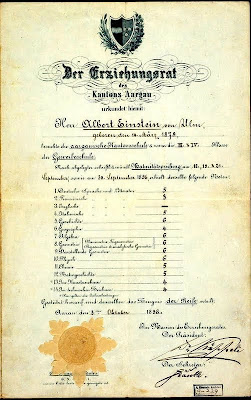 Der Erziehungsrat
des
Kantons Aargau
urkundet hiemit:
Herr Albert Einstein von Ulm,
geboren den 14. März 1879,
besuchte die aargauische Kantonsschule & zwar die III. & IV. Klasse
der Gewerbeschule.
Nach abgelegter schriftl. & mündl. Maturitätsprüfung am 18., 19. & 21.
September, sowie am 30. September 1896, erhielt derselbe folgende Noten:
1. Deutsche Sprache und Litteratur 5
2. Französische " " 3
3. Englische " " —
4. Italienische " " 5
5. Geschichte 6
6. Geographie 4
7. Algebra 6
8. Geometrie (Planimetrie, Trigonometrie, Stereometrie & analytische Geometrie) 6
9. Darstellende Geometrie 6
10. Physik 6
11. Chemie 5
12. Naturgeschichte 5
13. Im Kunstzeichnen 4
14. Im technischen Zeichnen 4
Gestützt hierauf wird demselben das Zeugnis der Reife erteilt.
Aarau den 3ten Oktober 1896.
Im Namen des Erziehungsrates,
Der Präsident:
Der Sekretär: